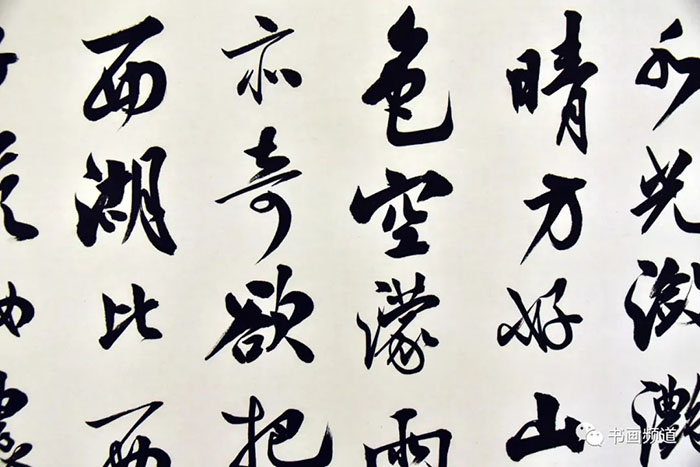 水光瀲灩
晴方好山
色空濛雨
亦奇欲把
西湖比西
书画频道